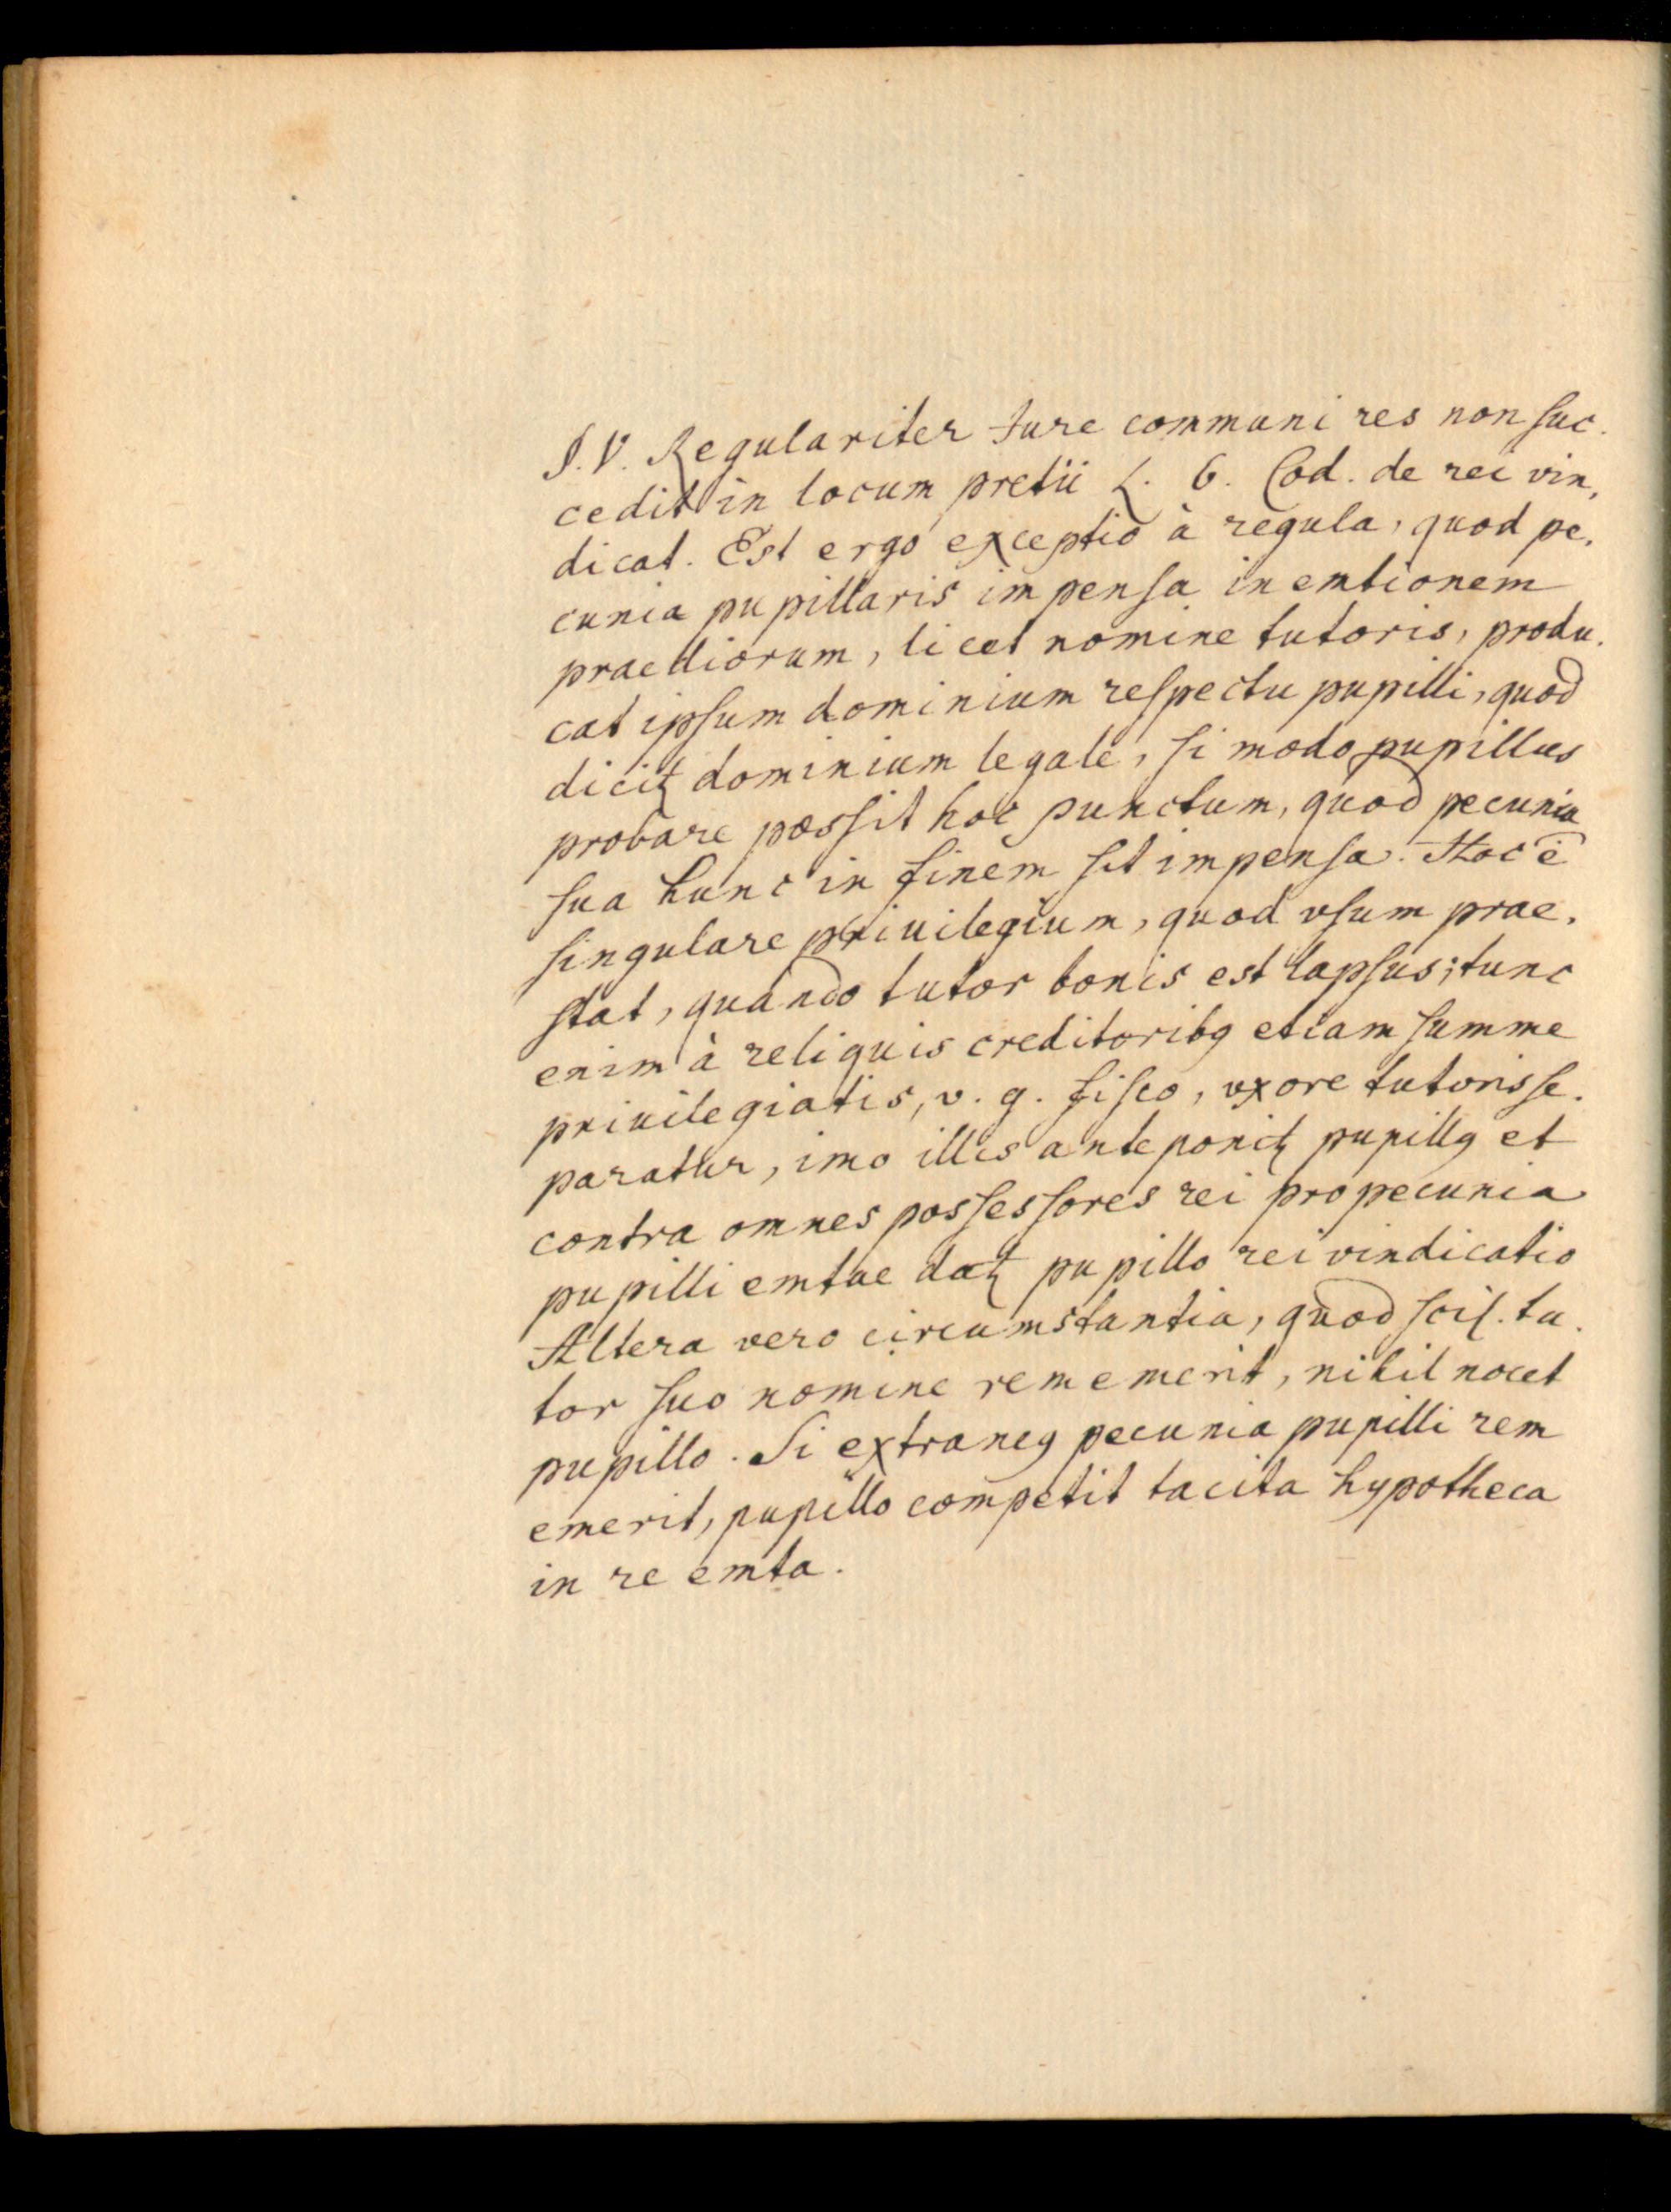 §. V. Regulariter Iure communi res non suc-
cedit in locum pretii L. 6. Cod. de rei vin-
dicat. Est ergo exceptio à regula, quod pe-
cunia pupillaris impensa in emtionem
praediorum, licet nomine tutoris, produ-
cat ipsum dominium respectu pupilli, quod
dicitꝛ dominium legale, si modo pupillus
probare possit hoc punctum, quod pecunia
sua hunc in finem sit impensa. Hoc ē
singulare priuilegium, quod vsum prae-
stat, quando tutor bonis est lapsus; tunc
enim à reliquis creditoribꝰ etiam summe
priuilegiatis, v. g. fisco, vxore tutoris se-
paratur, imo illis anteponitꝛ pupillꝰ et
contra omnes possessores rei pro pecunia
pupilli emtae datꝛ pupillo rei vindicatio
Altera vero circumstantia, quod scil. tu-
tor suo nomine rem emerit, nihil nocet
pupillo. Si extraneꝰ pecunia pupilli rem
emerit, pupillo competit tacita hypotheca
in re emta.